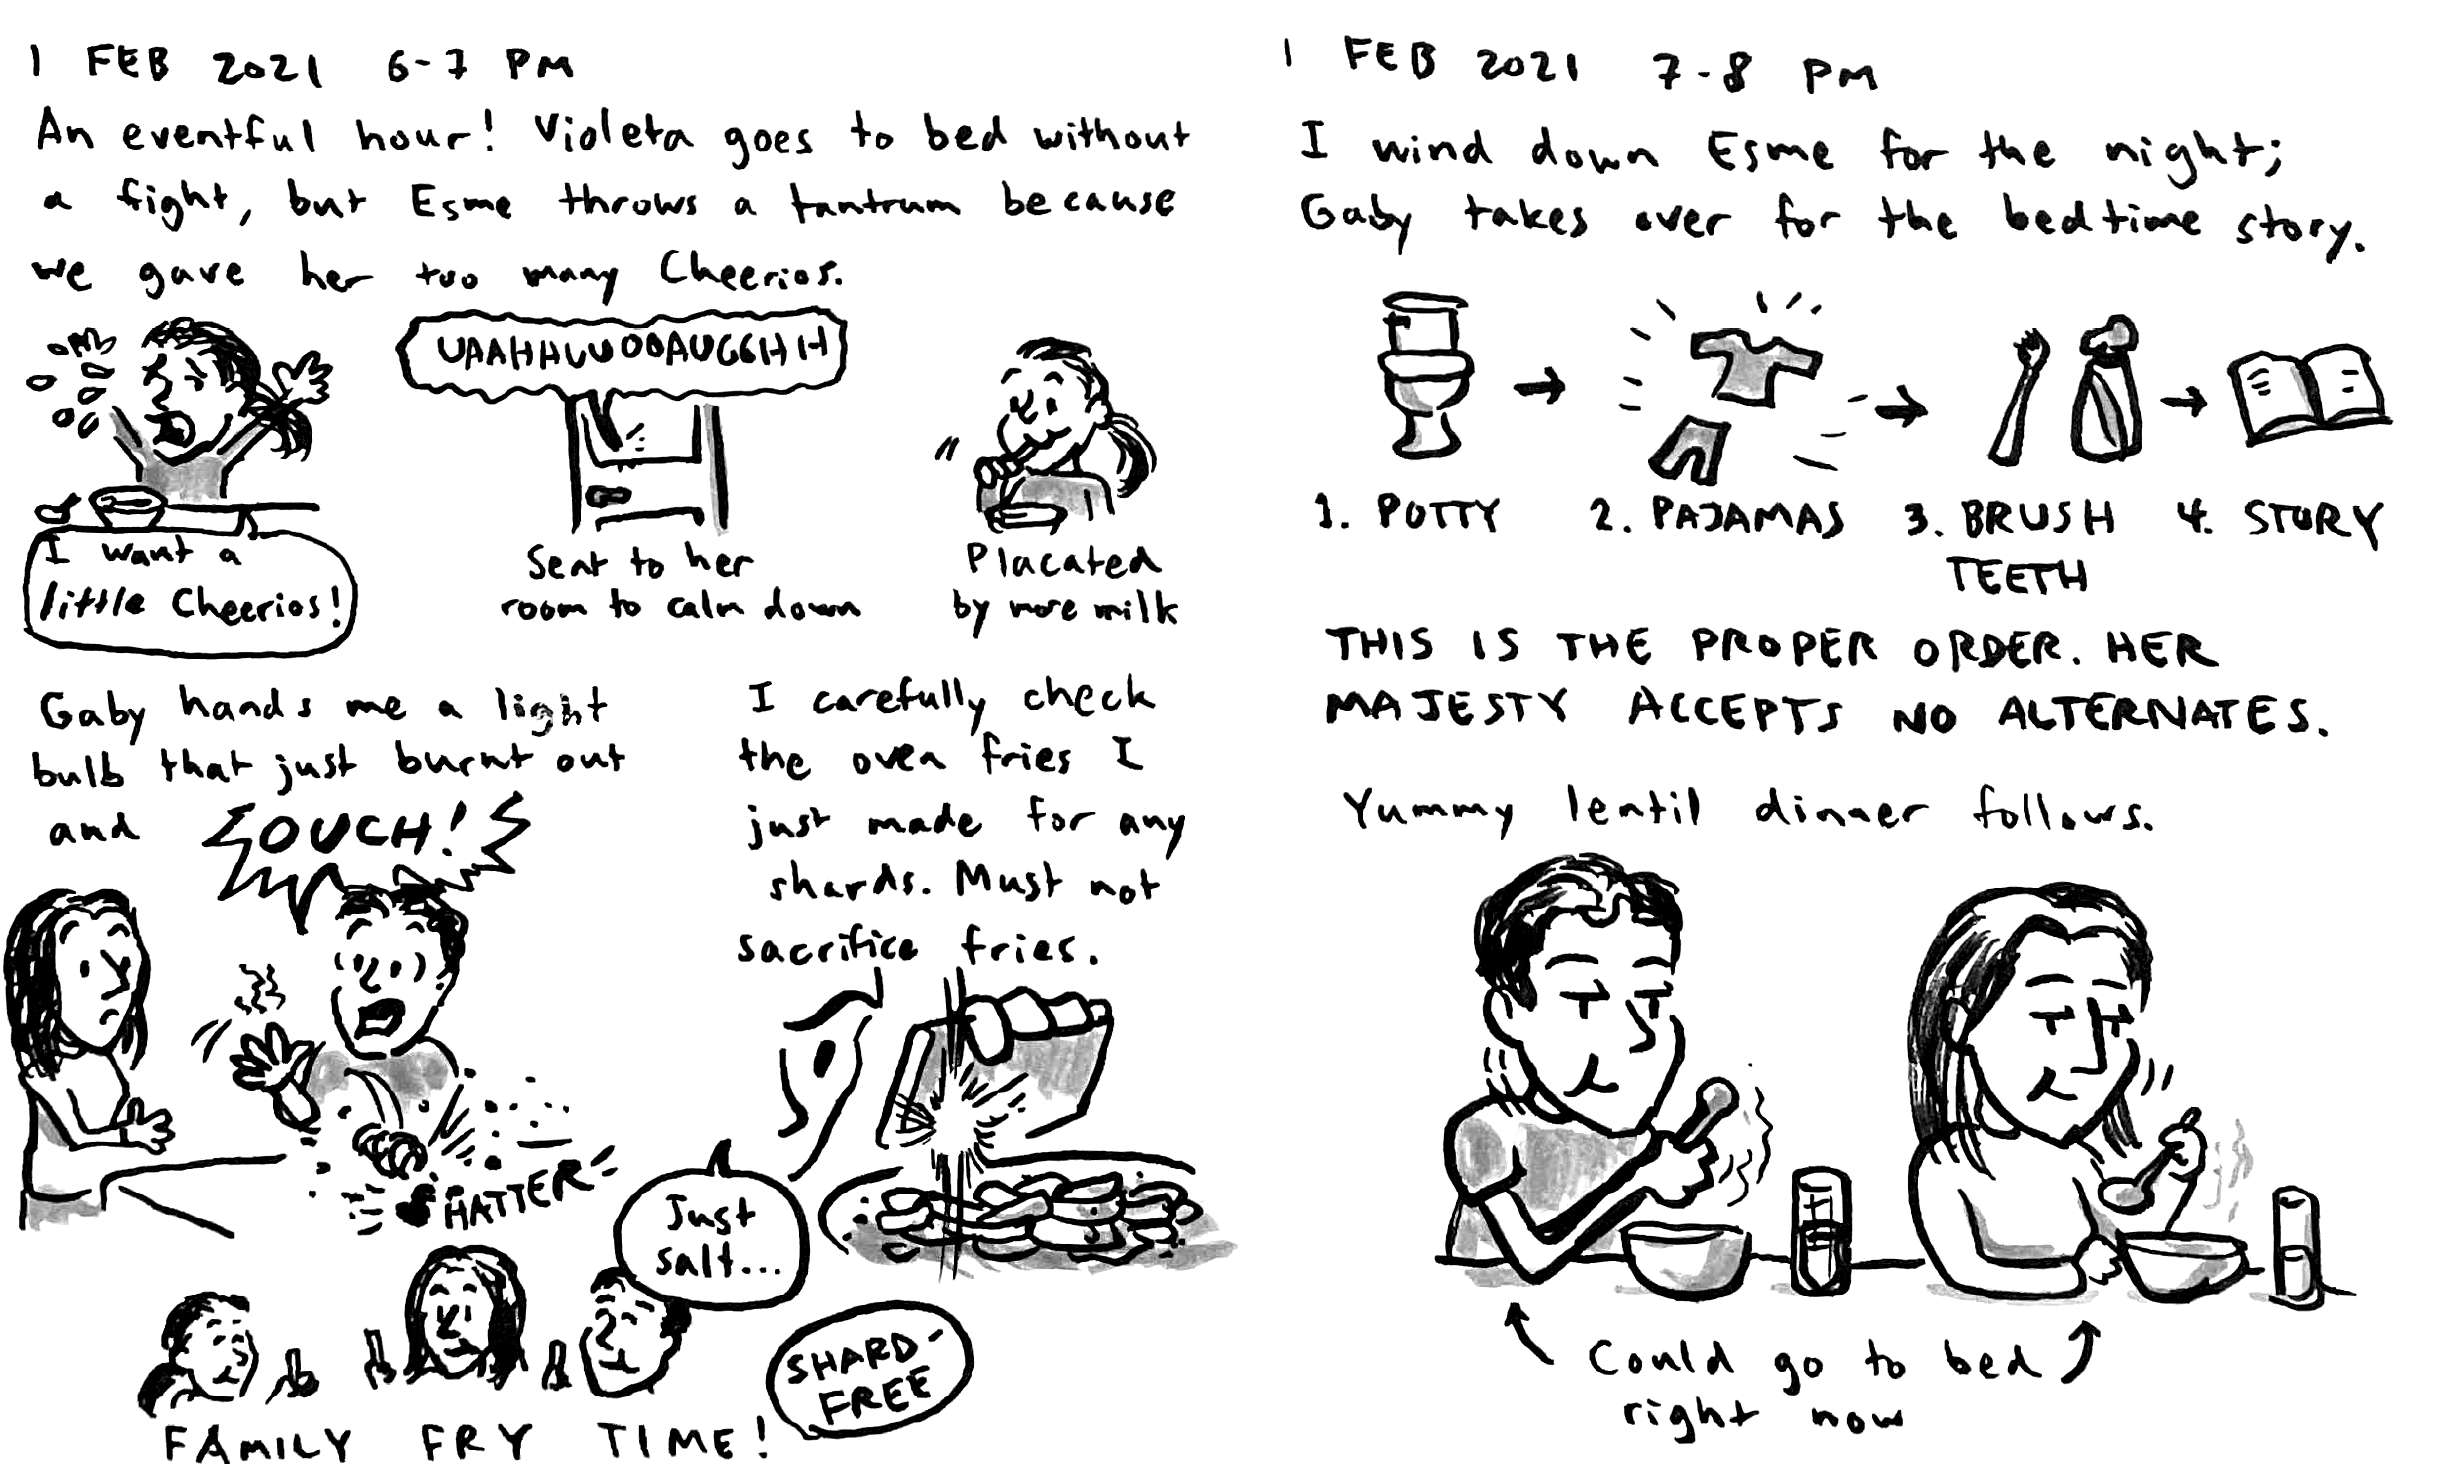 1 FEB 2021 6-7 PM
An eventful hour! Violeta goes to bed without
a fight, but Esme throws a tantrum because
we gave her too many Cheerios.
UAAHHUUOOAUGGHH
I want a
little Cheerios!
Sent to her
room to calm down
Placated
by more milk
Gaby hands me a light
bulb that just burnt out
and
OUCH!
SHATTER
I carefully check
the oven fries I
just made for any
shards. Must not
sacrifice fries.
Just
salt...
SHARD-
FREE
FAMILY FRY TIME!
1 FEB 2021 7-8 PM
I wind down Esme for the night;
Gaby takes over for the bedtime story.
1. POTTY
2. PAJAMAS
3. BRUSH
TEETH
4. STORY
THIS IS THE PROPER ORDER. HER
MAJESTY ACCEPTS NO ALTERNATES.
Yummy lentil dinner follows.
Could go to bed
right now